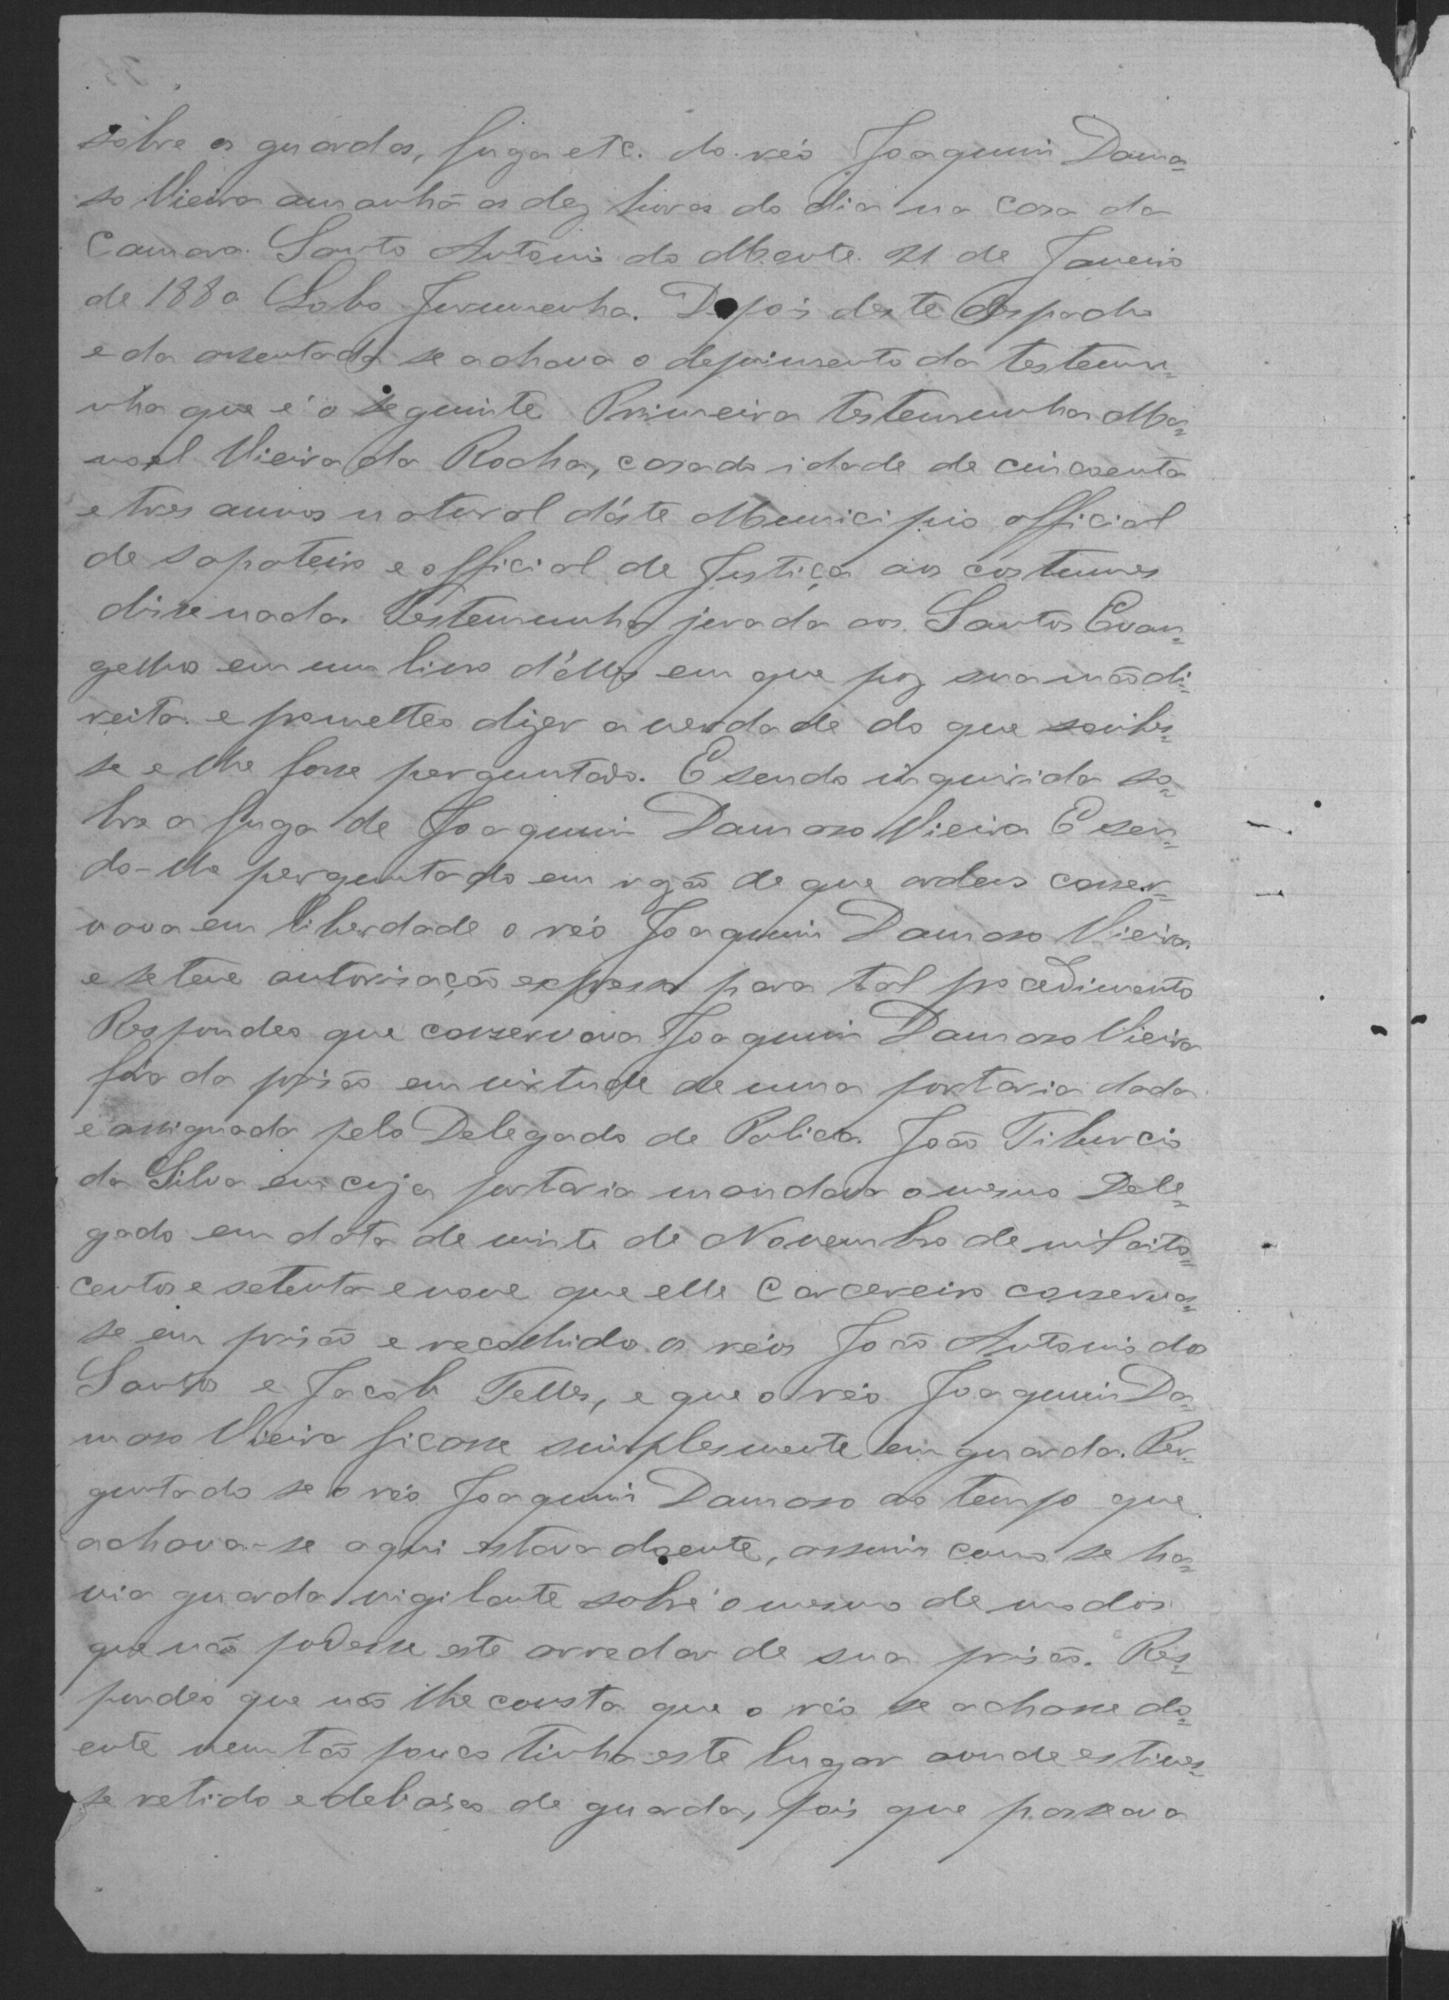 sobre os guardas, fuga etc. do réo Joaquim Dama=
so Vieira amanhã as dez horas do dia na casa da
Camara. Santo Antonio do Monte 21 de Janeiro
de 1880 Lobo Jurumenha. Depois deste despacho
e da assentada se achava o depoimento da testemu=
nha que é o seguinte Primeira testemunha Ma=
noel Vieira da Rocha, casado idade de cincoenta
e tres annos natural d'éste Municipio official
de sapateiro e official de Justiça aos costumes
disse nada. Testemunha jurada aos Santos Evan=
gelhos em um livro d'elles em que poz sua mão di=
reita e prometteo dizer a verdade do que soubes=
se e lhe fosse perguntado. E sendo inquirida so=
bre a fuga de Joaquim Damaso Vieira E sen=
do-lhe perguntado em rasão de que ordens conser=
vava em liberdade o réo Joaquim Damaso Vieira
e se teve autorisação expressa para tal procedimento
Respondeo que conservava Joaquim Damaso Vieira
fóra da prisão em virtude de uma portaria dada
e assignada pelo Delegado de Policia João Tiburcio
da Silva em cuja portaria mandava o mesmo Dele=
gado em data de vinte de Novembro de mil oito=
centos e setenta e nove que elle Carcereiro conservas=
se em prisão e recolhido os réos João Antonio dos
Santos e Jacob Telles, e que o réo Joaquim Da=
maso Vieira ficasse simplesmente em guarda. Per=
guntado se o réo Joaquim Damaso ao tempo que
achava-se aqui estava doente, assim como se ha=
via guarda vigilante sobre o mesmo de modos
que não podesse este arredar de sua prisão. Res=
pondeo que não lhe consta que o réo se achasse do=
ente nem tão pouco tinha este lugar aonde estives=
se retido e debaixo de guarda, pois que passeava